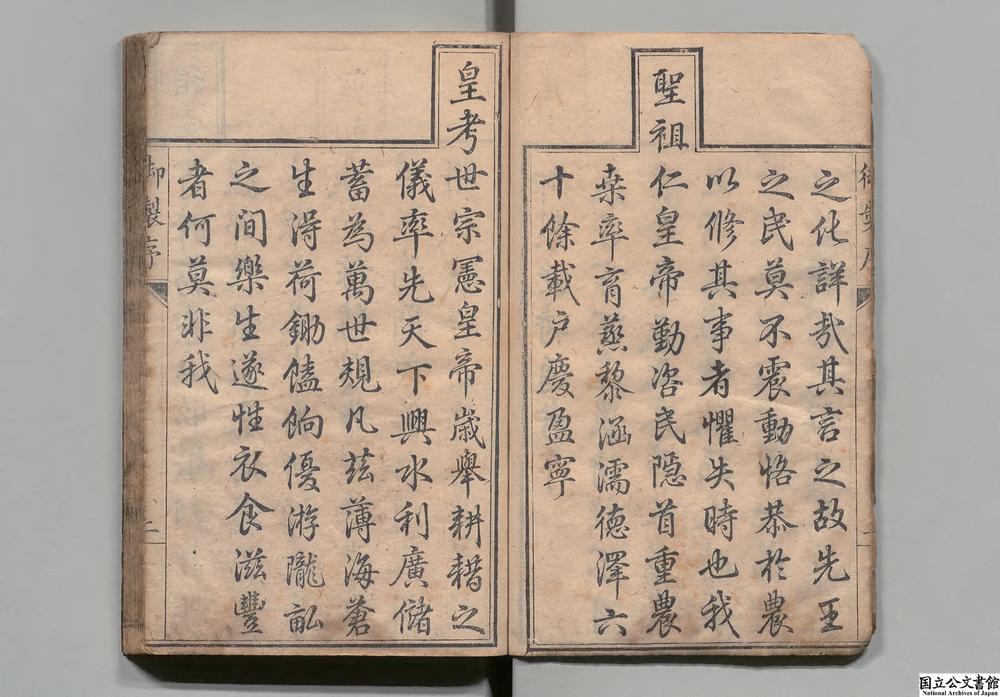 之化詳哉其言之故先王
之民莫不震動恪恭於農
以修其事者懼失時也我
聖祖仁皇帝勤咨民隱首重農
桑率育蒸黎涵濡德澤六
十餘載戶慶盈寧
皇考世宗憲皇帝歲舉耕耤之
儀率先天下興水利廣儲
蓄為萬世規凡茲薄海蒼
生得荷鋤饁餉優游隴畝
之間樂生遂性衣食滋豐
者何莫非我
御製序 二
国立公文書館
National Archives of Japan